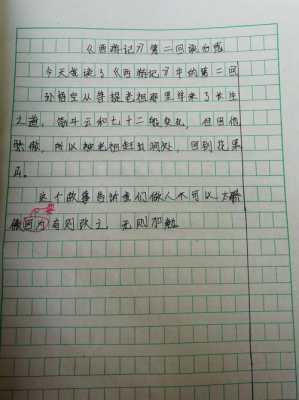 《西游记》第二回读后感
今天我读了《西游记》中的第二回
孙悟空从菩提老祖那里学来了长生
之道，筋斗云和七十二般变化，但因他
骄傲，所以被老祖赶出洞外，回到花果
山。
这个故事告诉我们做人不可以太骄
傲，有则改之，无则加勉